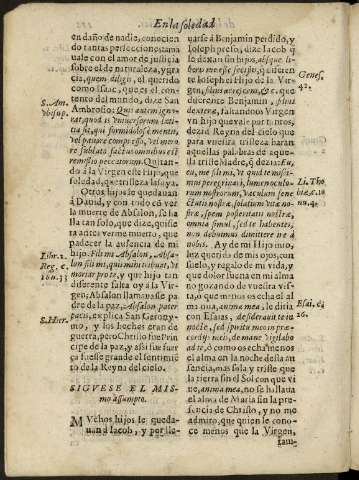 En la soledad
en daño de nadie, conocien
do tantas perfecciones tama
vale con el amor de justicia
sobre el de naturaleza, y gra
cia, quem diligis, el querido
como Isaac, que es el con-
tento del mundo, dize San
Ambrosio:
S. Am.
tia sit, qui
vel patiere compressis,
remissio peccatorum. Quitan-
do à la Virgen este Hijo, que
soledad, que tristeza la suya.
Otros hijos le quedauan
à Dauid, y con todo en ver
la muerte de Absalon, se ha
lla tan solo, que dize, quisie
ra antes verme muerto, que
padecer la ausencia de mi
hijo. Fili mi Absalon, Absa-
lon fili mi, quis mihi tribuat, vt
moriar pro te, y que hijo tan
diferente falta oy à la Vir-
gen; Absalon llamase paz
de la paz, Absalon pater
pacis, explica San Gerony-
mo, y los hechos eran de
guerra, pero Christo fue Prin
cipe de la paz, y assi fue fuer
ça fuesse grande el sentimié
to de la Reyna del cielo.
Libr. 2.
Reg. c.
18. n. 33
S. Hier.
SIGVESE EL MIS-
mo assumpto.
MVchos hijos le queda-
uan à Iacob, y per lle-
uarse à Benjamin perdido, y
Ioseph preso, dize Iacob q̃
le dexan sin hijos, absque li-
beris me esse fecistis, quisieren
te Ioseph el Hijo de la Vir-
gen, filius accrescens, &c. que
ducerente Benjamin, filius
dexteræ, faltandoos Virgen
vn hijo que vale por tantos,
dezid Reyna del cielo que
para vuestra tristeza haràn
aquellas palabras de aque-
lla triste Madre, q̃ dezia: Eu,
Genes.
42.
peregrinari, lumen oculo-
rum nostrorum, baculum sene-
ctutis nostræ, solatium vitæ no-
stræ, spem posteritatis nostræ,
omnia simul, in te vno habentes,
non debuimus dimittere te à
nobis. Ay de mi Hijo mio,
luz querida de mis ojos, con
suelo, y regalo de mi vida, y
que dolor siente mi alma
no gozando de vuestra vis-
ta, o que menos os echa el al
ma mia, anima mea, le diria
con Esaias, desiderauit te in
nocte, sed spiritu meo in præcor-
dijs meis, de mane vigilabo
ad te, ò como os echa menos
el alma en la noche desta au
sencia, mas sola y triste que
la tierra sin el Sol con que vi
ue, anima mea, no se hallaua
el alma de Maria sin la pre-
sencia de Christo, y no me
admiro, que quien le cono-
ce menos que la Virgen,
Li. Tho
biæ c. 10
nu. 4.
Esai. c.
26.
tam-